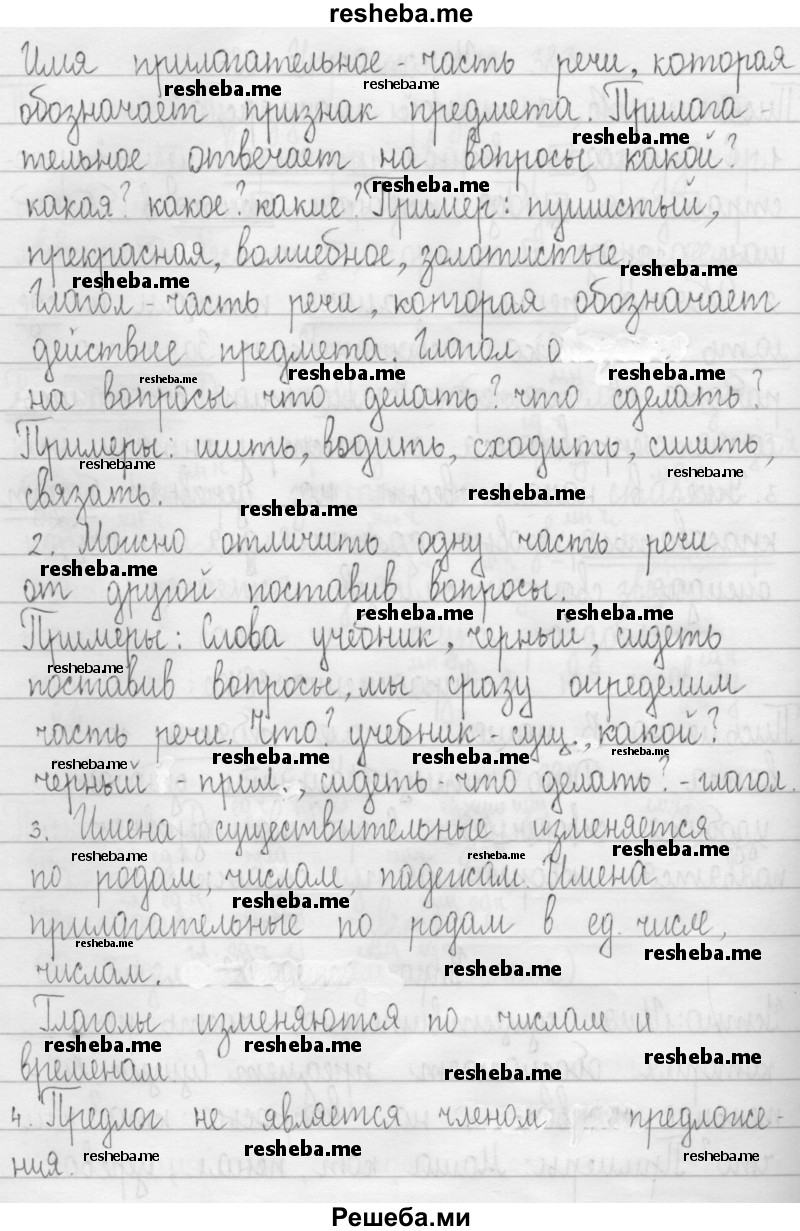 resheba.me
Имя прилагательное - часть речи, которая
обозначает признак предмета. Прилага
тельное отвечает на вопросы какой?
какая? какое? какие? Пример: пушистый,
прекрасная, волшебное, золотистые
Глагол - часть речи, которая обозначает
действие предмета. Глагол о
на вопросы что делать? что сделать?
Примеры: шить, водить, сходить, сшить,
связать.
2. Можно отличить одну часть речи
от другой поставив вопросы.
Примеры: Слова учебник, черный, сидеть
поставив вопросы, мы сразу определим
часть речи. Что? учебник - сущ., какой?
черный - прил., сидеть - что делать? - глагол.
3. Имена существительные изменяется
по родам, числам, падежам. Имена
прилагательные по родам в ед. числе,
числам.
Глаголы изменяются по числам и
временам.
4. Предлог не является членом предложе-
ния.
Решеба.ми